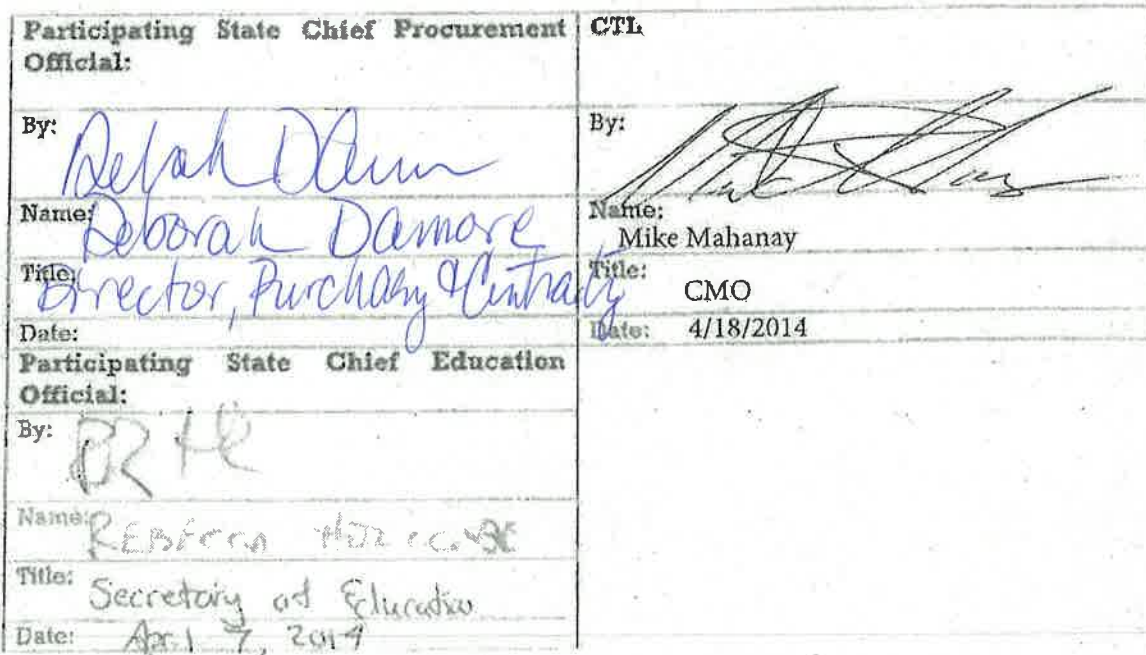 Participating State Chief Procurement
Official:
By:
Name: Deborah Damore
Title: Director, Purchasing &
Date:
Participating State Chief Education
Official:
By:
Name: REBECCA HOLCOMBE
Title: Secretary of Education
Date: April 7, 2014
CTL
By:
Name:
Mike Mahanay
Title:
CMO
Date: 4/18/2014